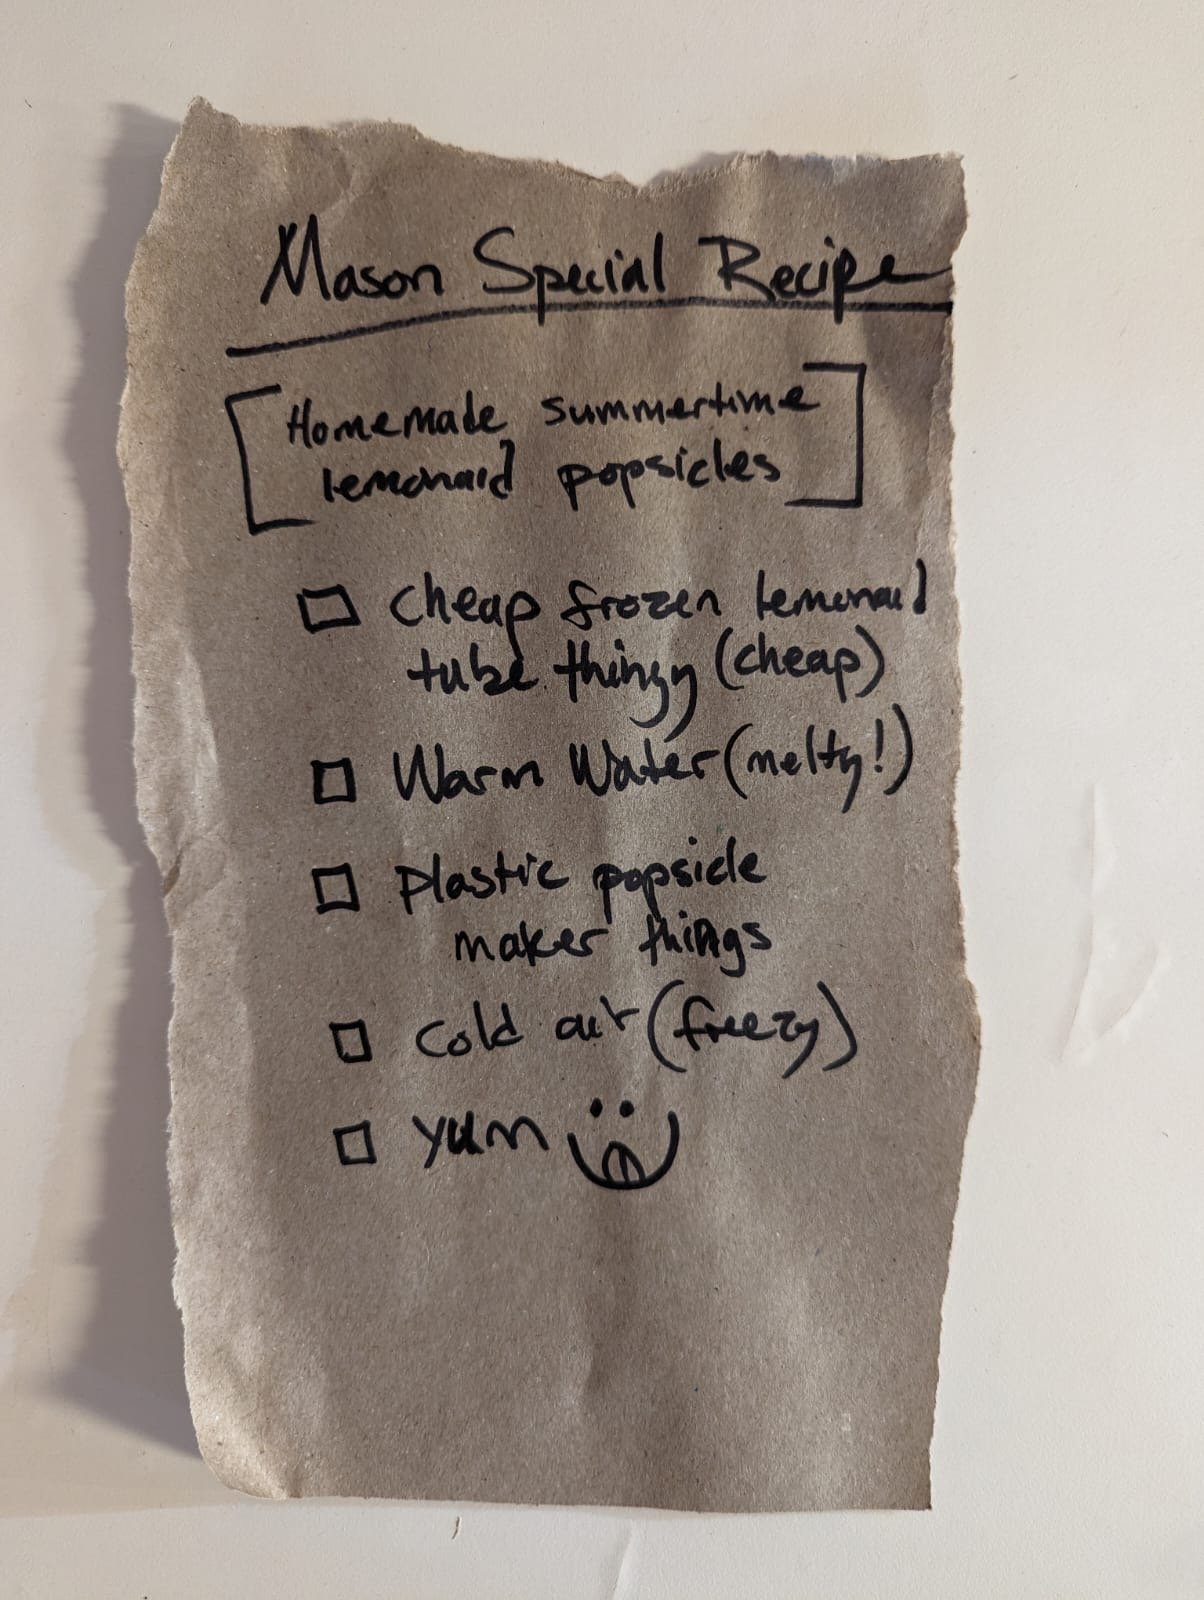 Mason Special Recipe
Homemade summertime
lemonaid popsicles
cheap frozen lemonaid
tube thingy (cheap)
Warm Water (melty!)
plastic popsicle
maker things
cold air (freezy)
yum